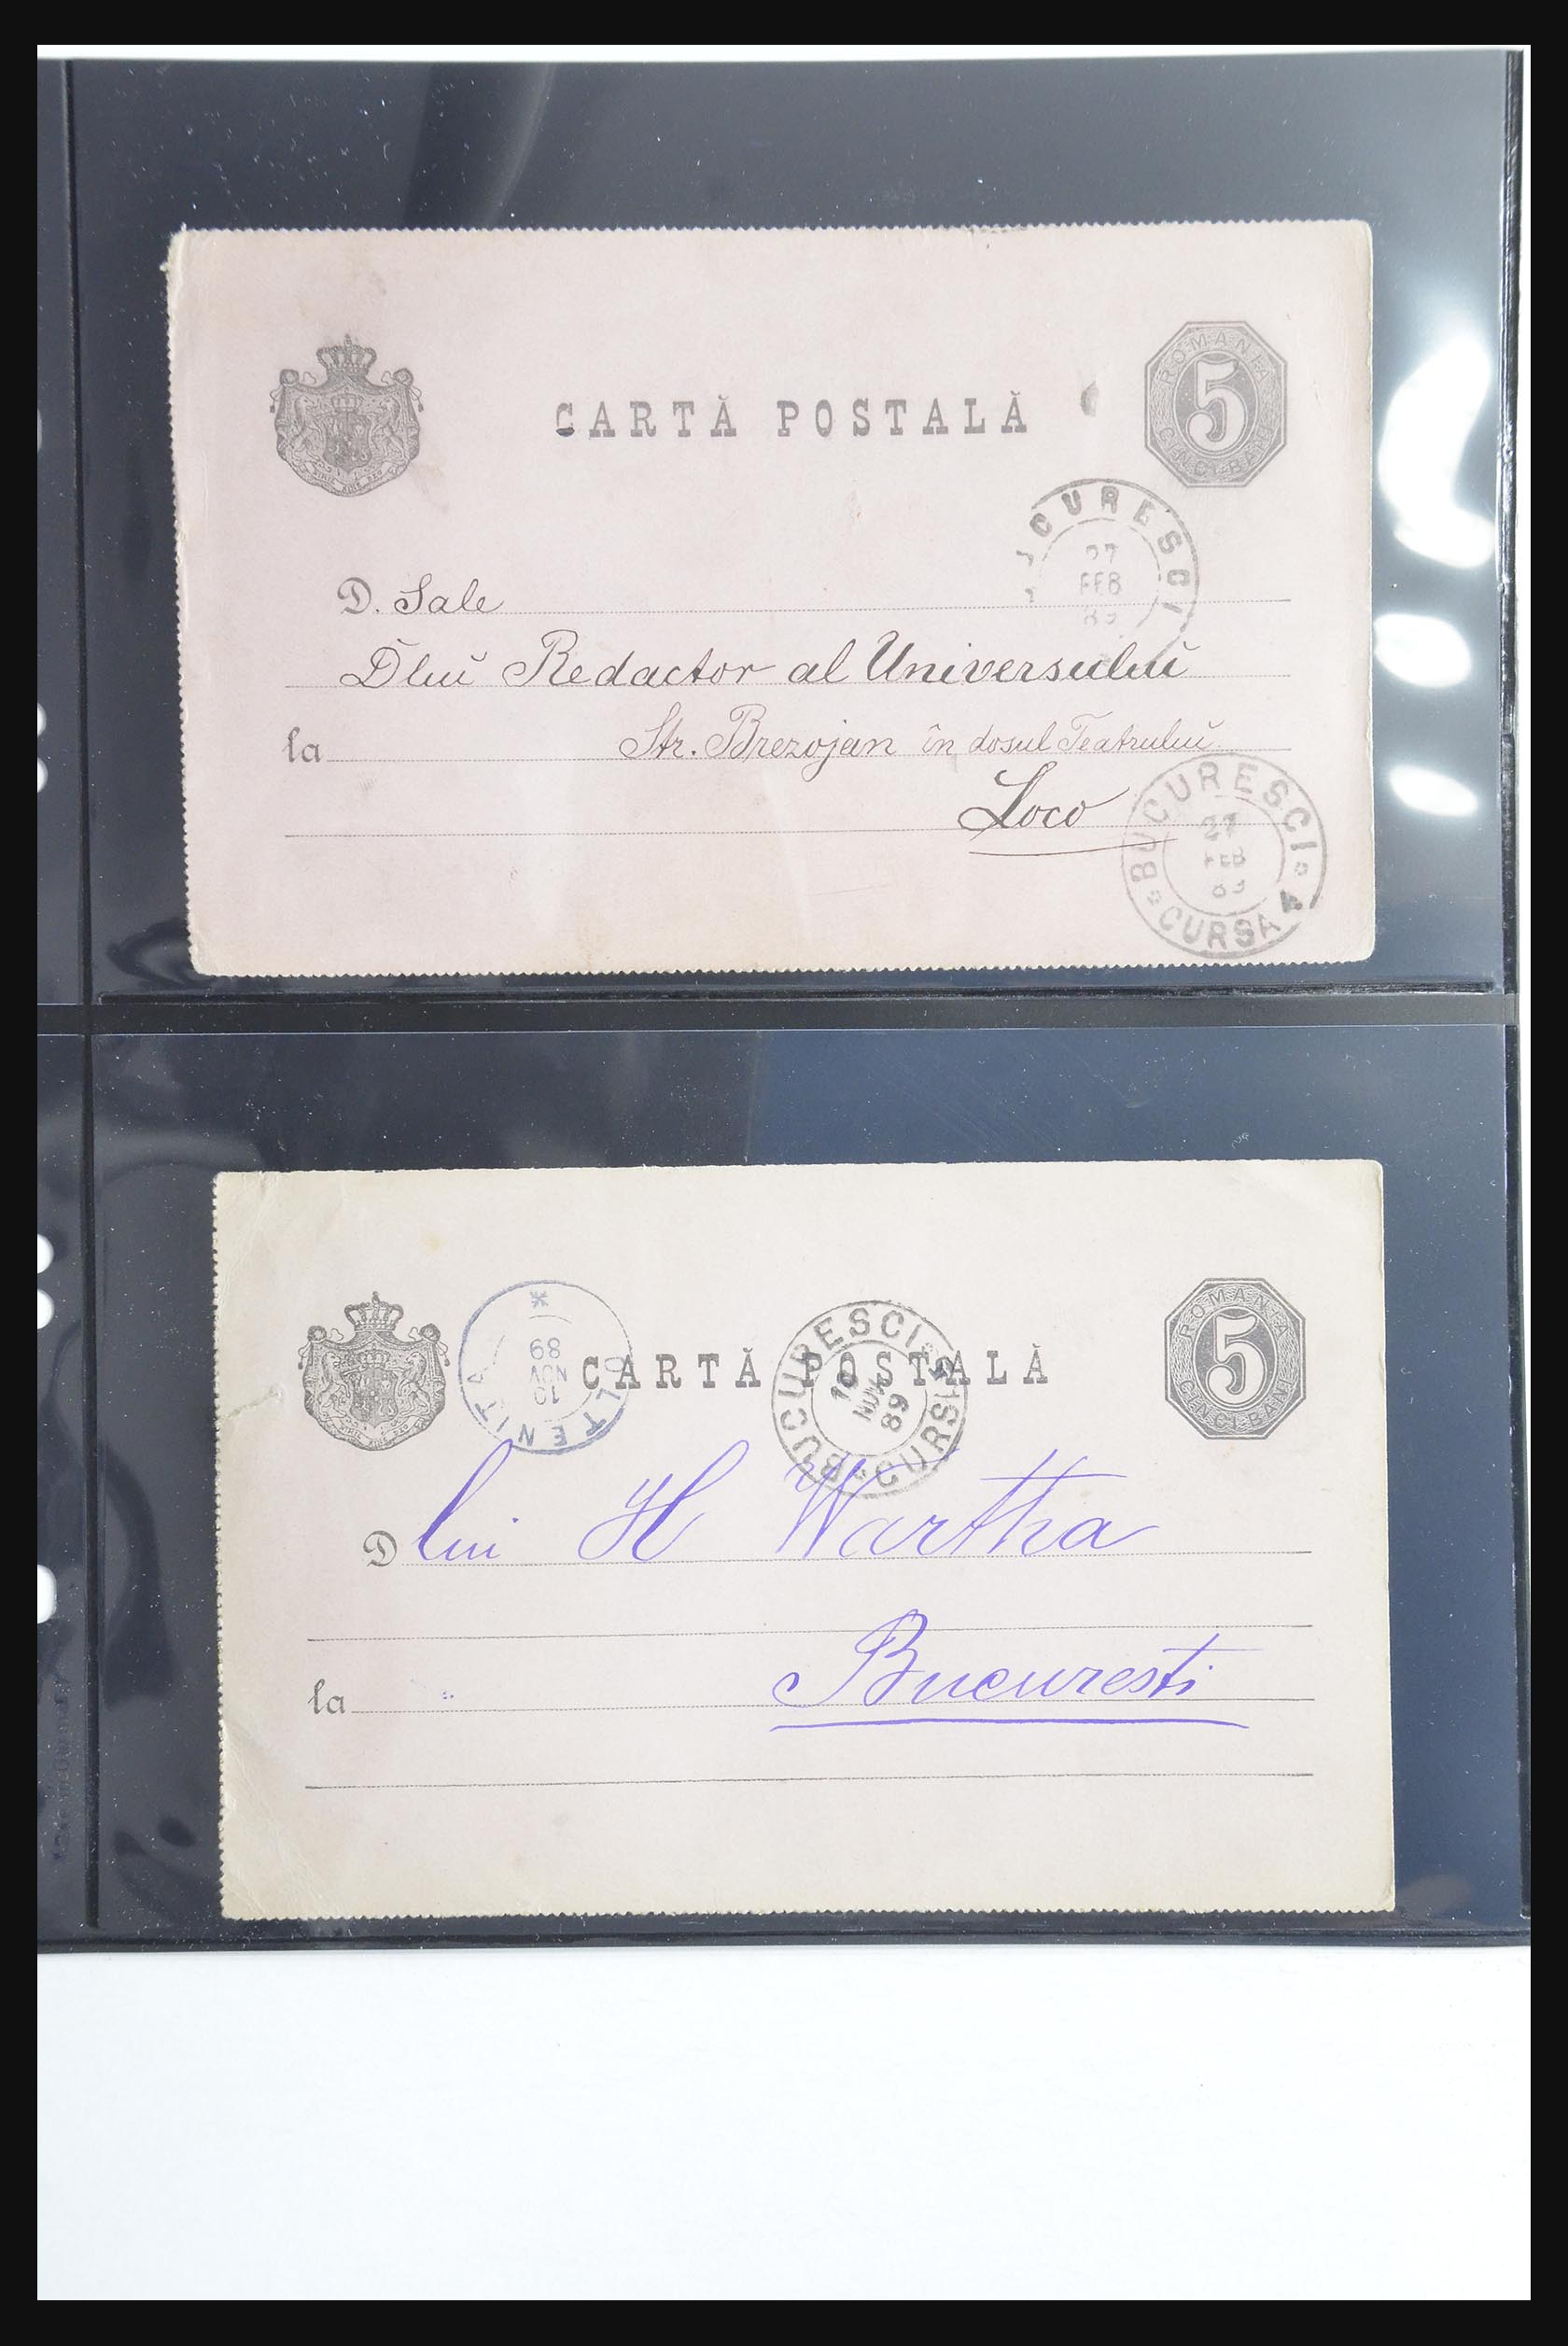 CARTĂ POSTALĂ
ROMANIA
5
CINCI BANI
CURESCI
27
FEB
D. Sale
Dluĭ Redactor al Universuluĭ
la Str. Brezojan în dosul Teatruluĭ
Loco
BUCURESCI
27
FEB
CURSA
CARTĂ POSTALĂ
ROMANIA
5
CINCI BANI
OLTENITA
10
NOV
89
BUCURESCI
10
NOV
89
CURSA
Dlui H Wartha
la Bucuresti